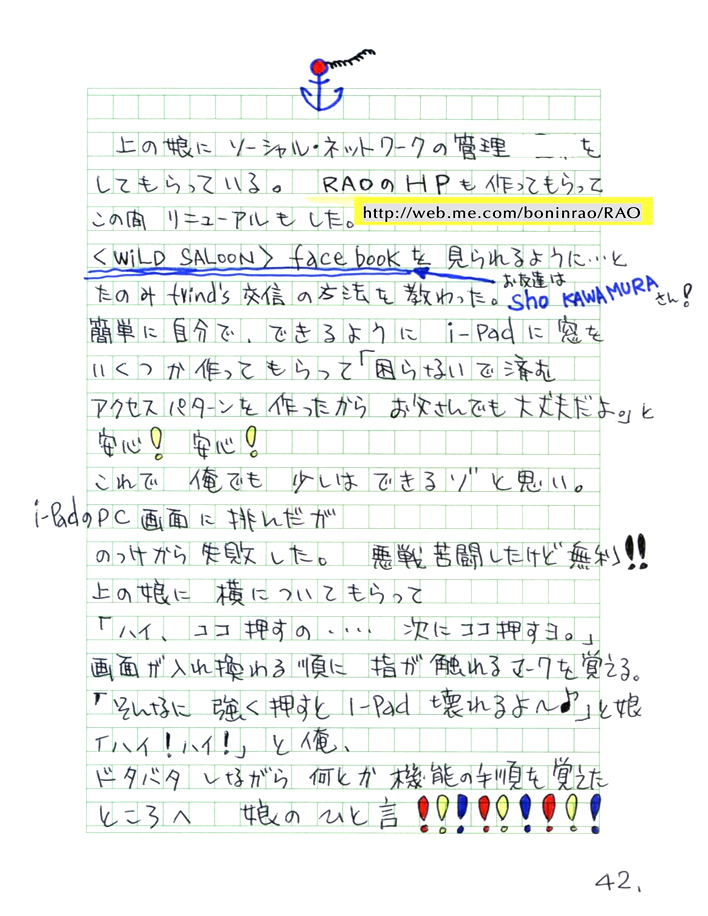 上の娘に ソーシャル・ネットワークの管理 を
してもらっている。 RAOのHPも作ってもらって
http://web.me.com/boninrao/RAO
この間 リニューアルもした。
<WiLD SALOON> face bookを 見られるように…と
お友達は
たのみ frind's 交信の方法を教わった。 Sho KAWAMURAさん!
簡単に自分で、できるように i-Padに窓を
いくつか作ってもらって「困らないで済む
アクセスパターンを作ったから お父さんでも大丈夫だよ。」と
安心! 安心!
これで 俺でも 少しは できるゾ と思い。
i-PadのPC画面に挑んだが
のっけから失敗した。 悪戦苦闘したけど無利!!
上の娘に 横についてもらって
「ハイ、ココ押すの・・・・ 次にココ押すヨ。」
画面が入れ換わる順に 指が触れるマークを覚える。
「そんなに 強く押すと i-Pad 壊れるよ〜♪」と娘
「ハイ!ハイ!」と俺、
ドタバタ しながら 何とか機能の手順を覚えた
ところへ 娘のひと言 !!!!!!!!!
42.